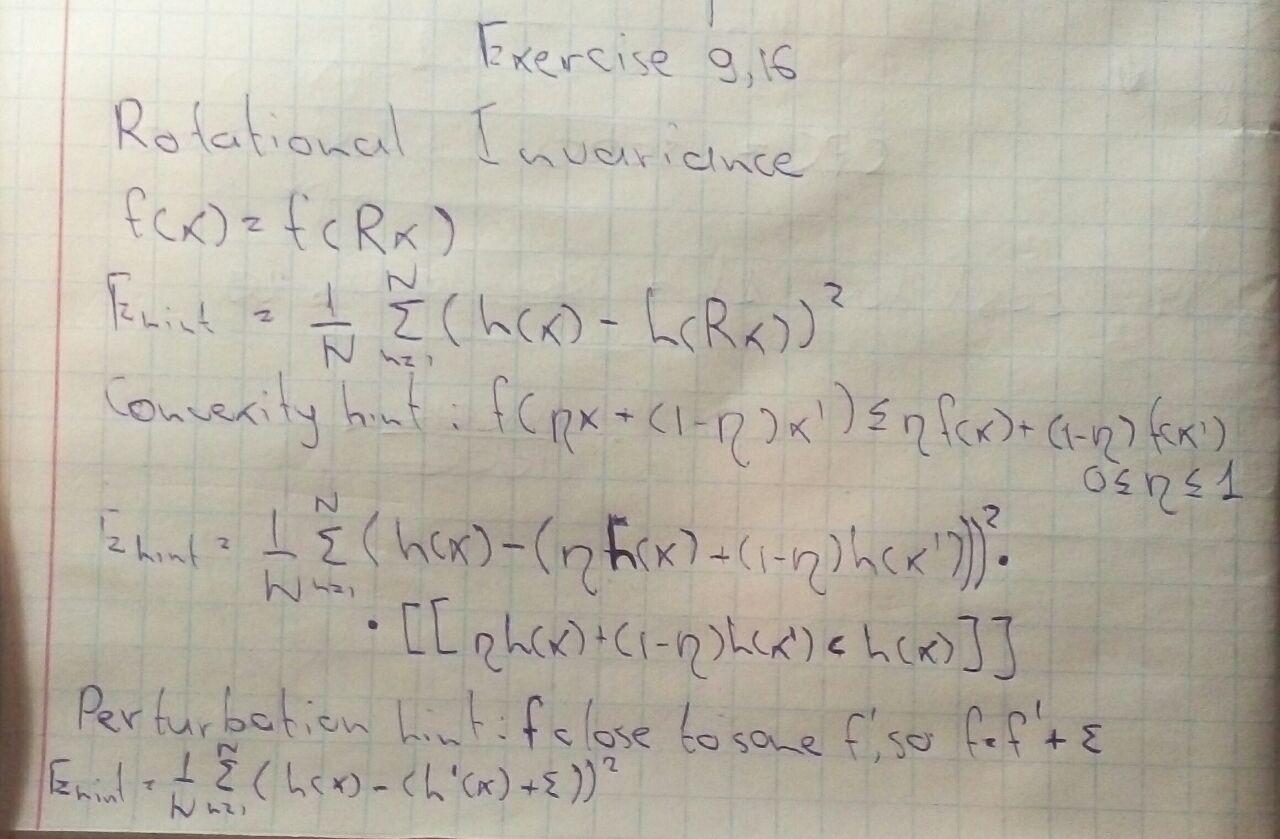 Exercise 9,16
Rotational Invariance
f(x) = f(Rx)
E_hint = 1/N Σ_{n=1}^{N} (h(x) - h(Rx))²
Convexity hint : f(ηx + (1-η)x') ≤ ηf(x) + (1-η)f(x')
0 ≤ η ≤ 1
E_hint = 1/N Σ_{n=1}^{N} (h(x) - (ηh(x) + (1-η)h(x')))² ·
· [[ηh(x) + (1-η)h(x') < h(x)]]
Perturbation hint : f close to some f', so f = f' + ε
E_hint = 1/N Σ_{n=1}^{N} (h(x) - (h'(x) + ε))²